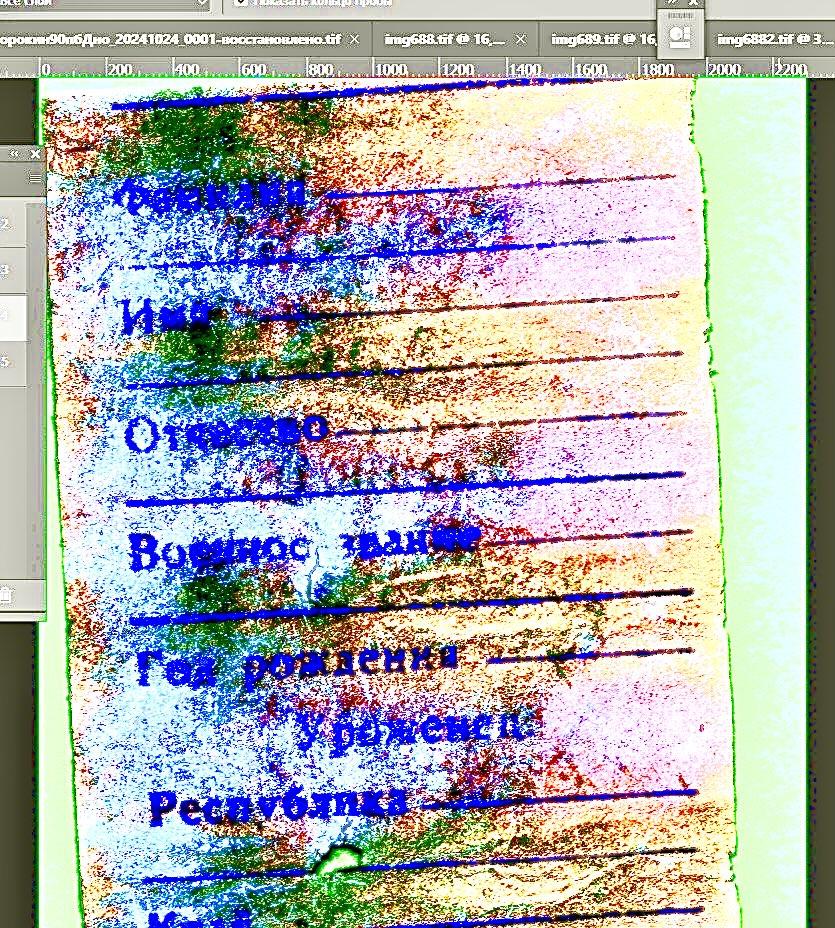 Все слои Показать кольцо пробы
орокин90пбДно_20241024_0001-восстановлено.tif × img688.tif @ 16,... × img689.tif @ 16, img6882.tif @ 3...
0 200 400 600 800 1000 1200 1400 1600 1800 2000 2200
Фамилия
Имя
Отчество
Военное звание
Год рождения
Уроженец:
Республика
Край
2
3
5